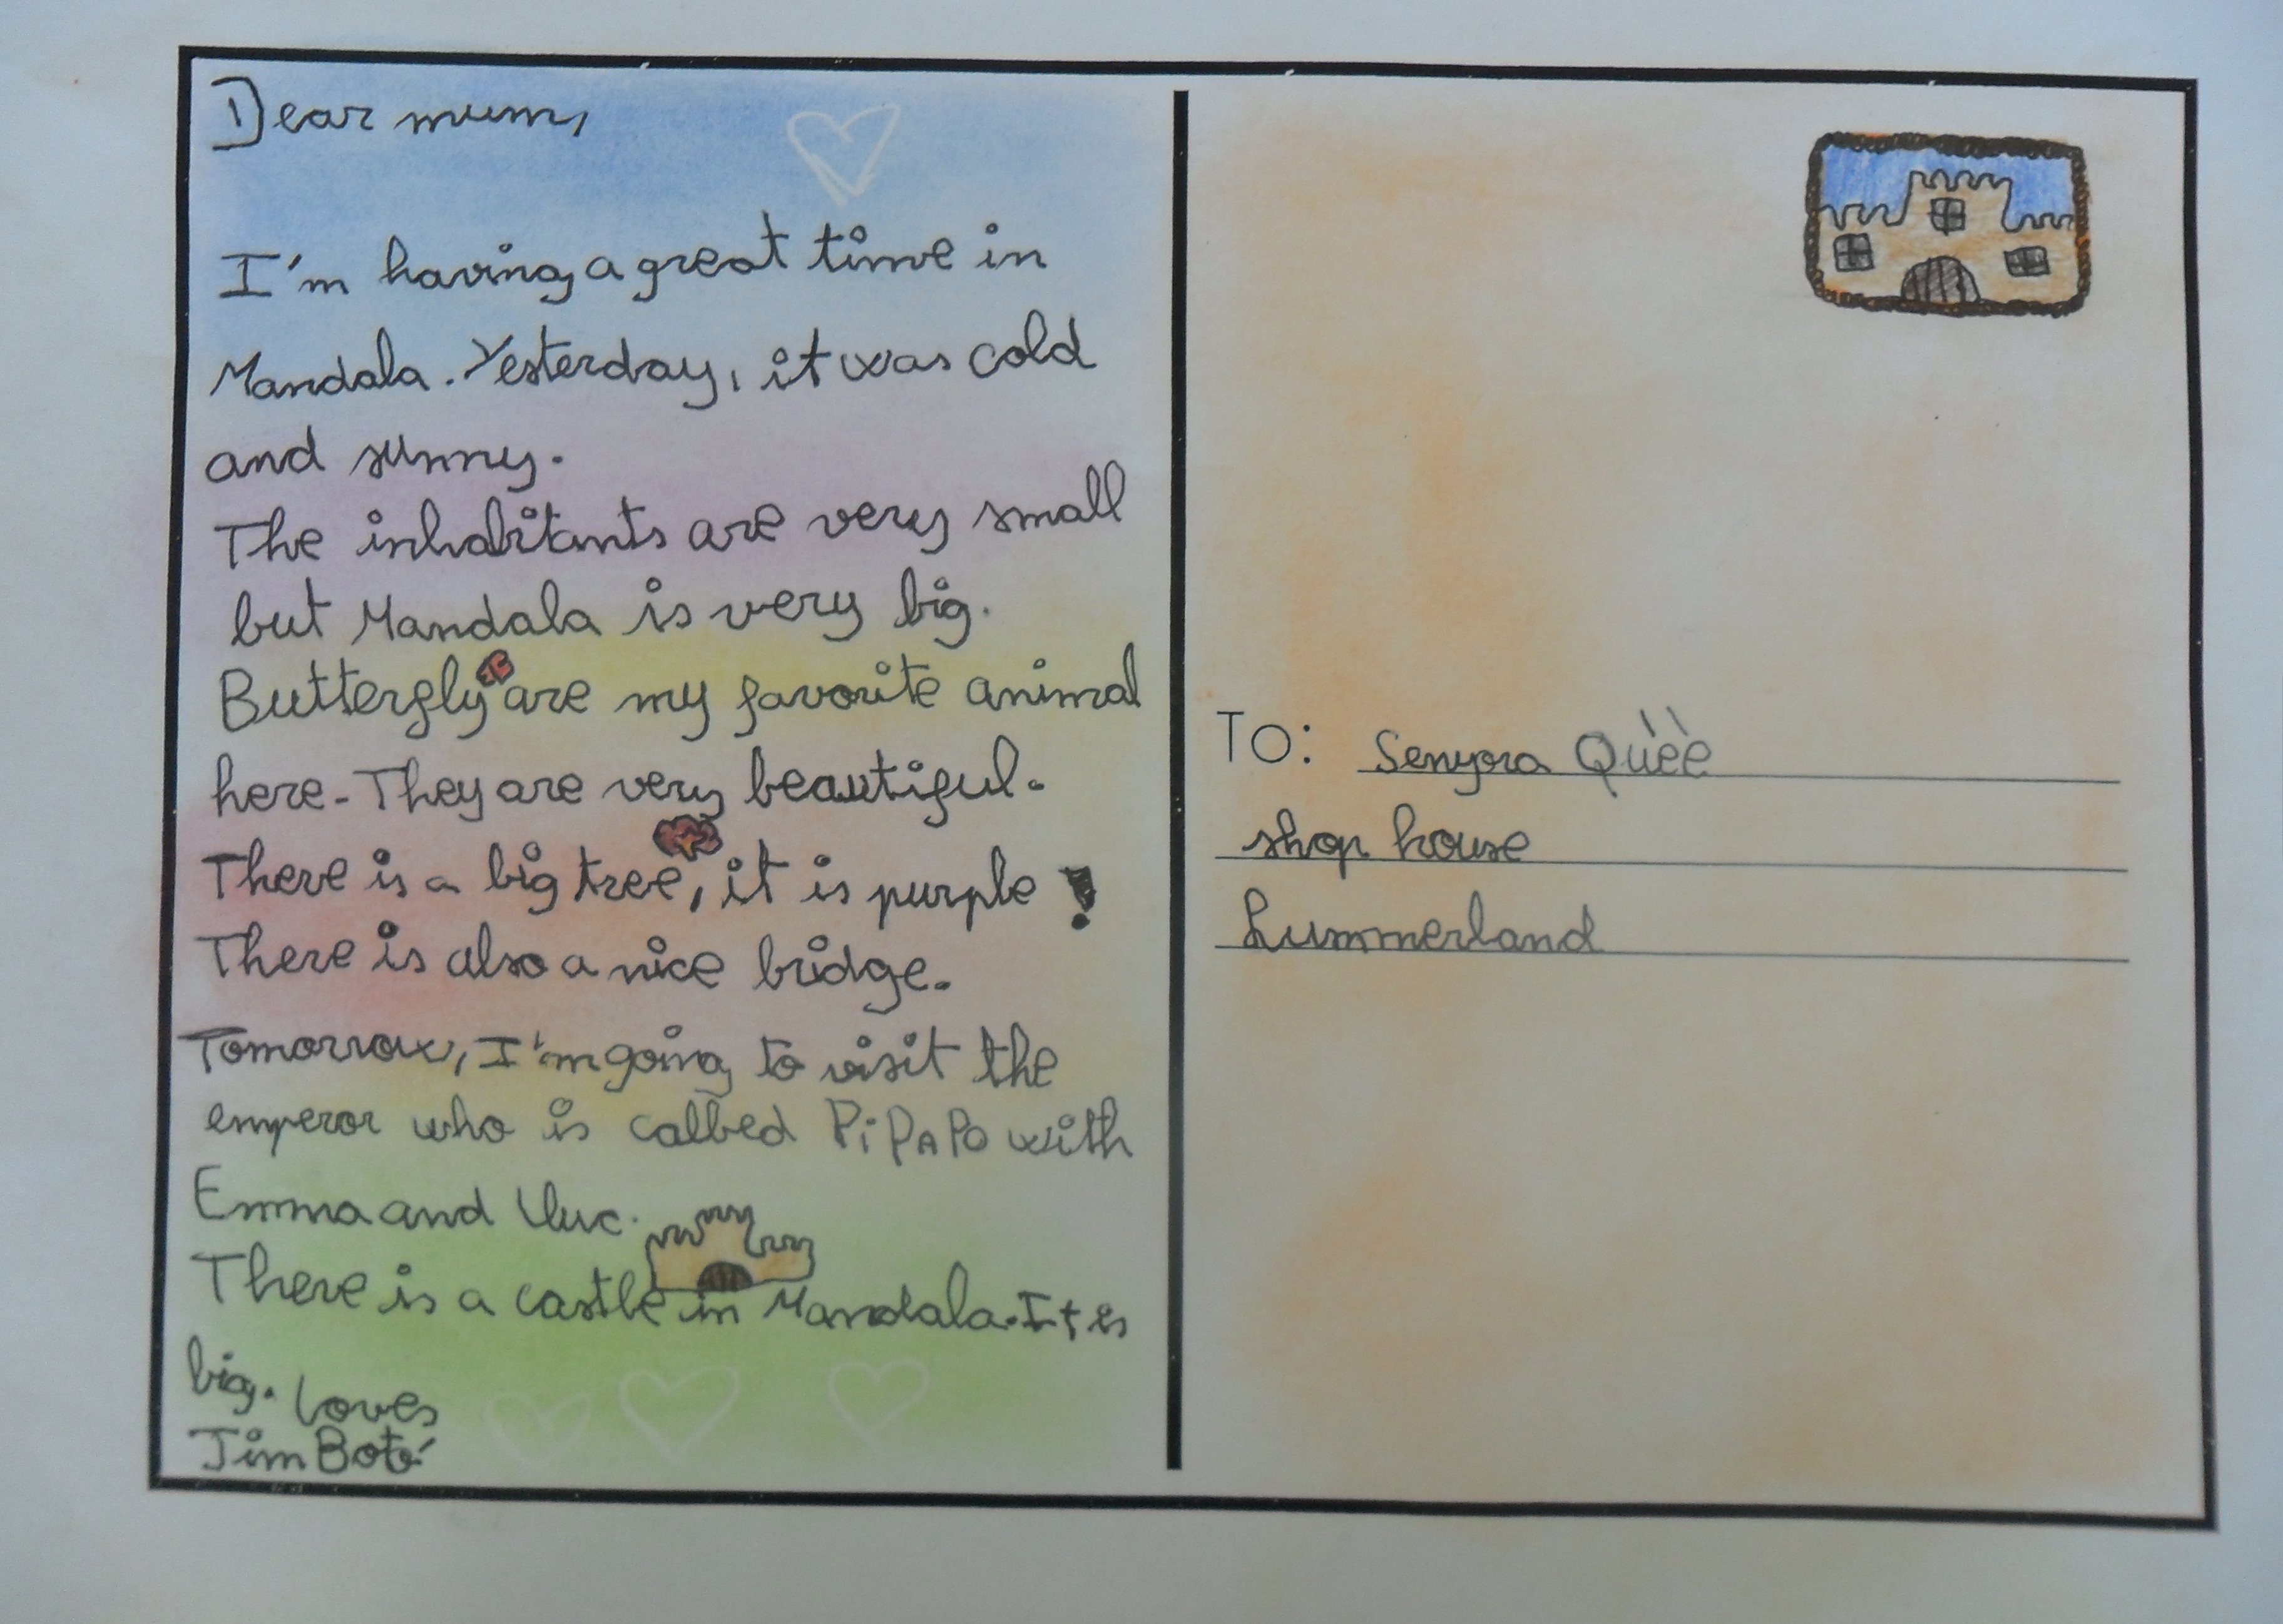 Dear mum,
I'm having a great time in
Mandala. Yesterday, it was cold
and sunny.
The inhabitants are very small
but Mandala is very big.
Butterfly are my favorite animal
here. They are very beautiful.
There is a big tree, it is purple!
There is also a nice bridge.
Tomorrow, I'm going to visit the
emperor who is called PiPAPO with
Emma and Lluc.
There is a castle in Mandala. It is
big. Loves
Jim Botó
TO: Senyora Quèè
shop house
Lummerland